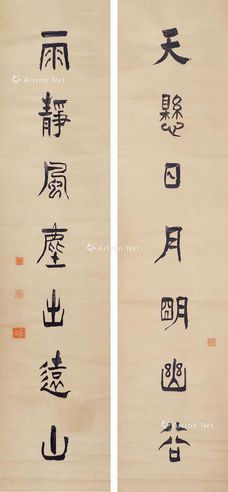 天懸日月明幽谷
雨靜風塵出遠山
Artron.Net
Artron.Net
Artron.Net
Artron.Net